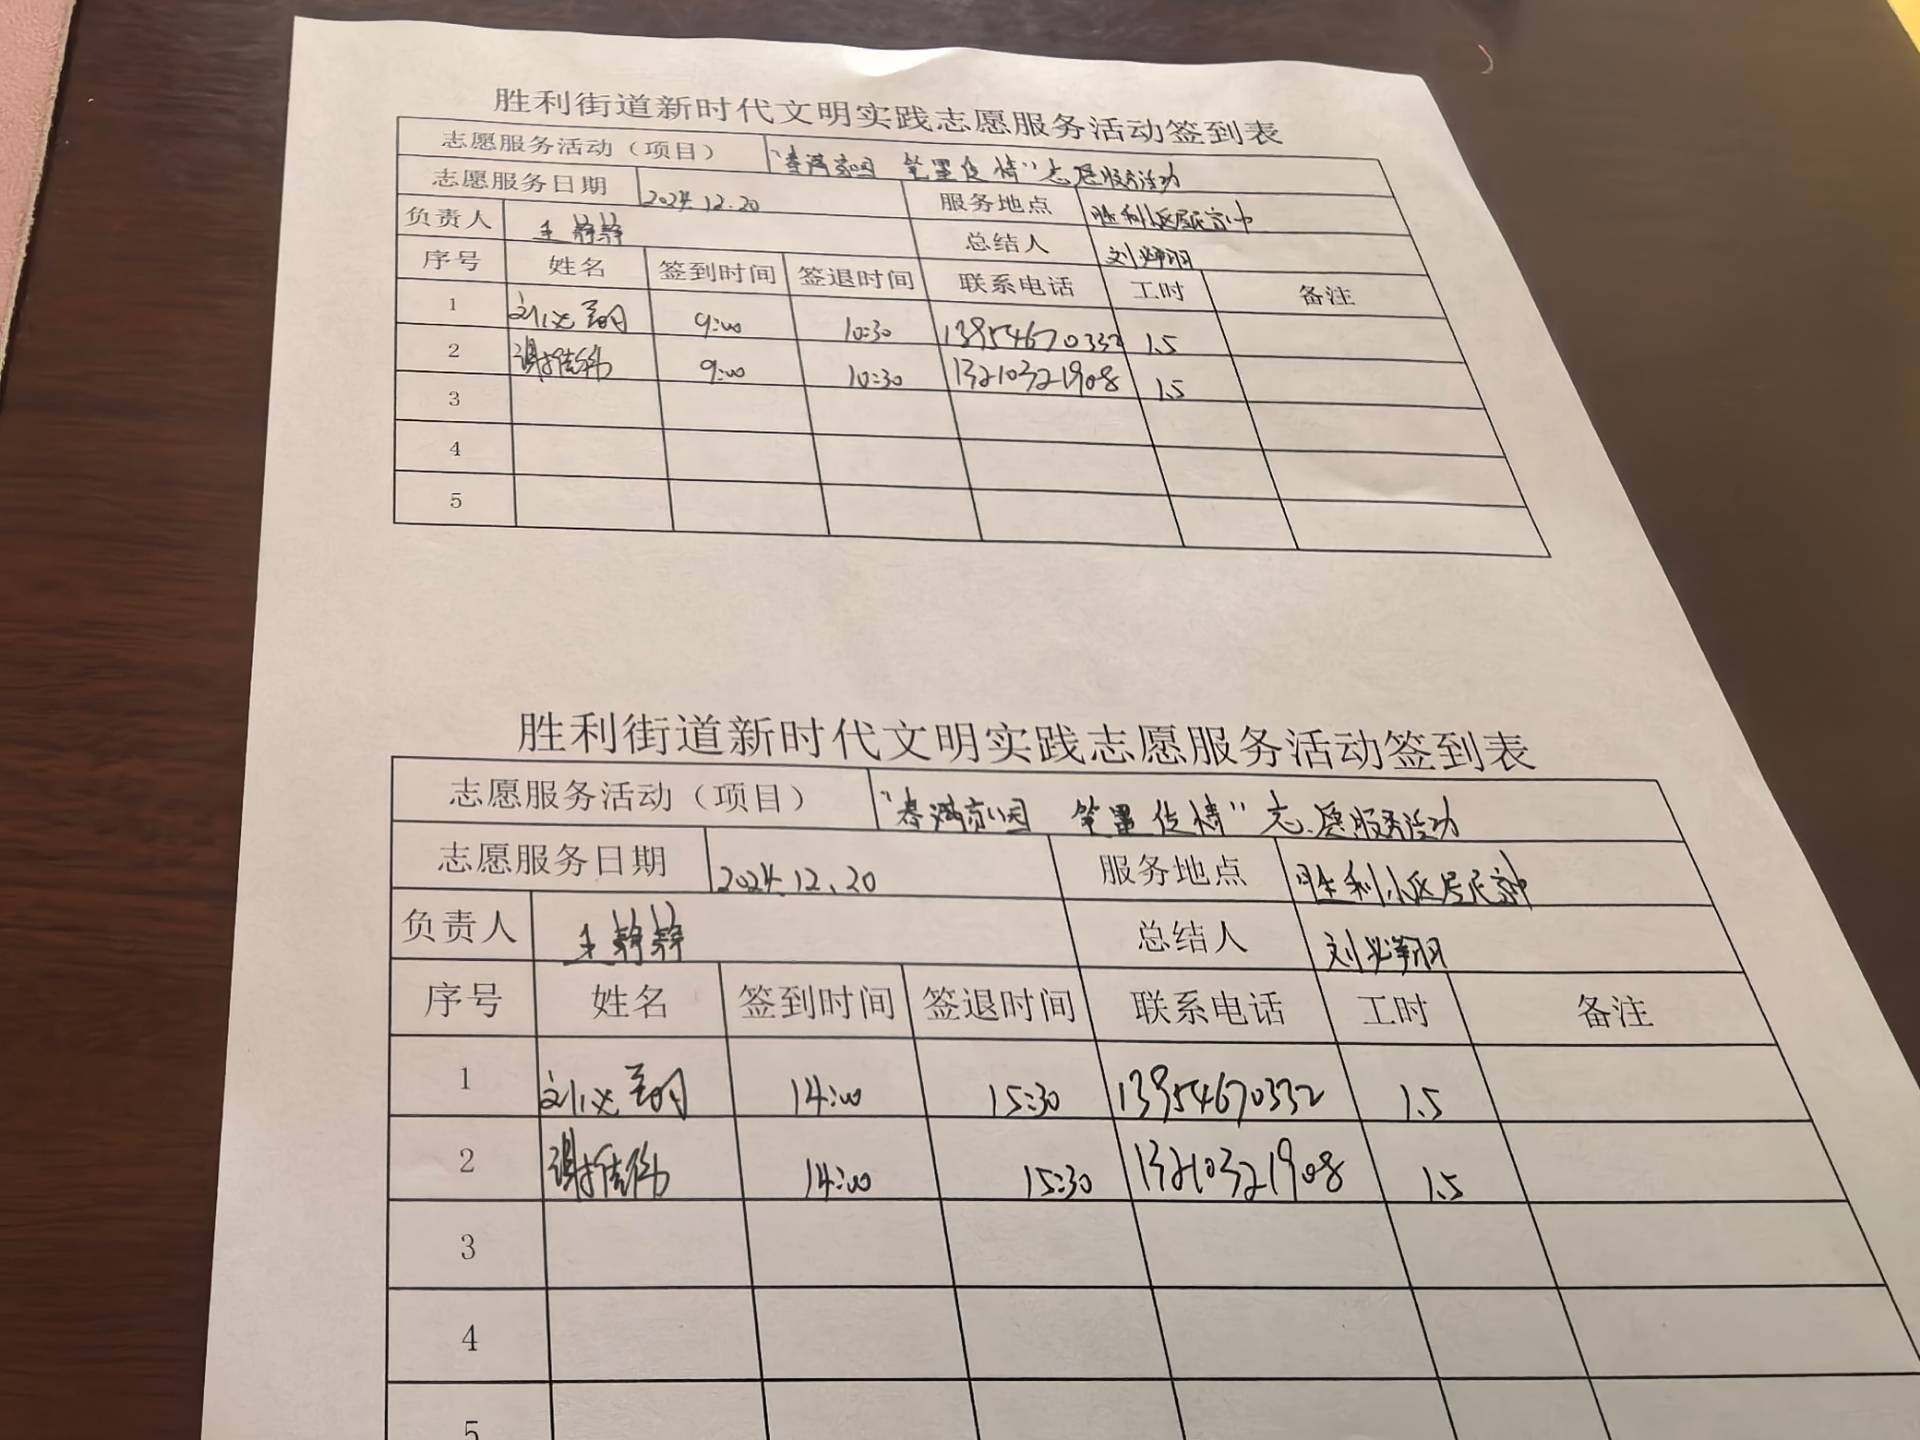 胜利街道新时代文明实践志愿服务活动签到表
志愿服务活动（项目） “春满家园 笔墨传情”志愿服务活动
志愿服务日期 2024.12.20 服务地点 胜利小区居民家中
负责人 王静静 总结人 刘必翔
序号 姓名 签到时间 签退时间 联系电话 工时 备注
1 刘必翔 9:00 10:30 13954670332 1.5
2 谢佳伟 9:00 10:30 13210321908 1.5
3
4
5
胜利街道新时代文明实践志愿服务活动签到表
志愿服务活动（项目） “春满家园 笔墨传情”志愿服务活动
志愿服务日期 2024.12.20 服务地点 胜利小区居民家中
负责人 王静静 总结人 刘必翔
序号 姓名 签到时间 签退时间 联系电话 工时 备注
1 刘必翔 14:00 15:30 13954670332 1.5
2 谢佳伟 14:00 15:30 13210321908 1.5
3
4
5